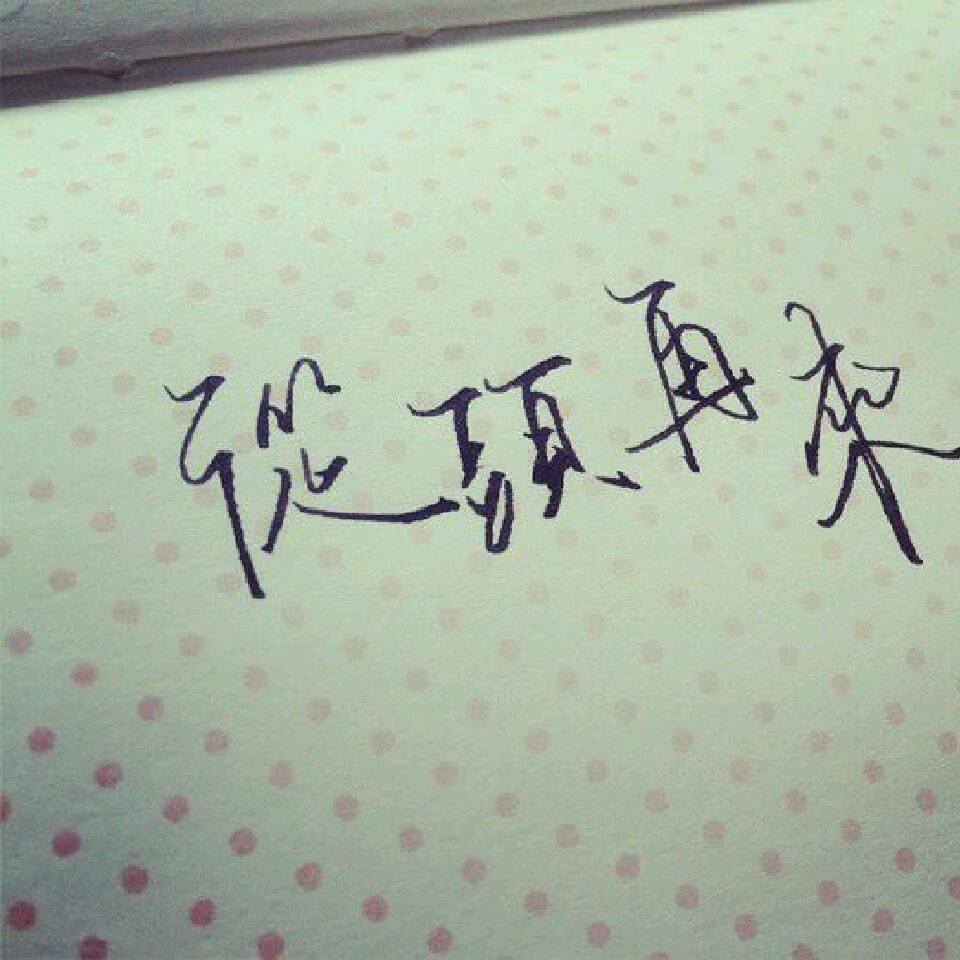 從頭再來